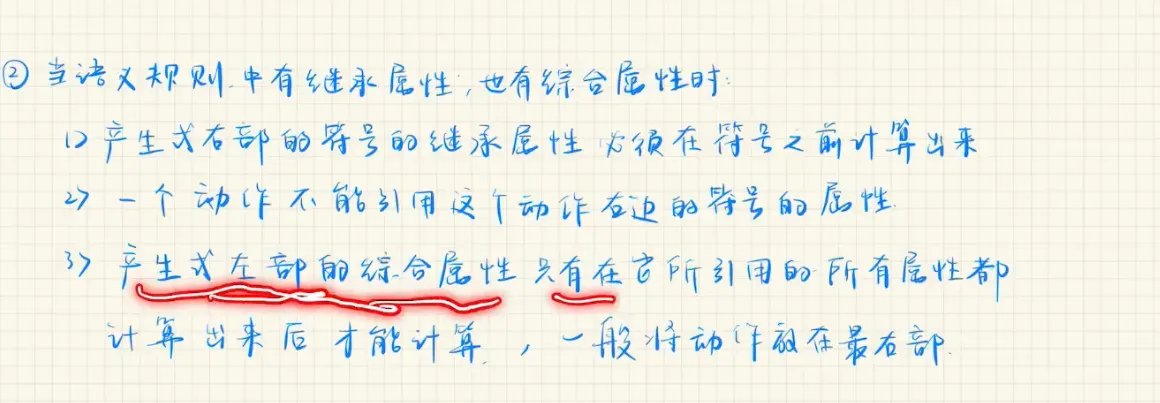 ② 当语义规则中有继承属性,也有综合属性时:
1) 产生式右部的符号的继承属性 必须在符号之前计算出来
2) 一个动作不能引用这个动作右边的符号的属性.
3) 产生式左部的综合属性 只有在它所引用的所有属性都
计算出来后才能计算,一般将动作放在最右部.